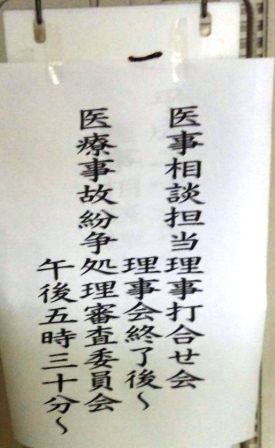 医事相談担当理事打合せ会
理事会終了後～
医療事故紛争処理審査委員会
午後五時三十分～